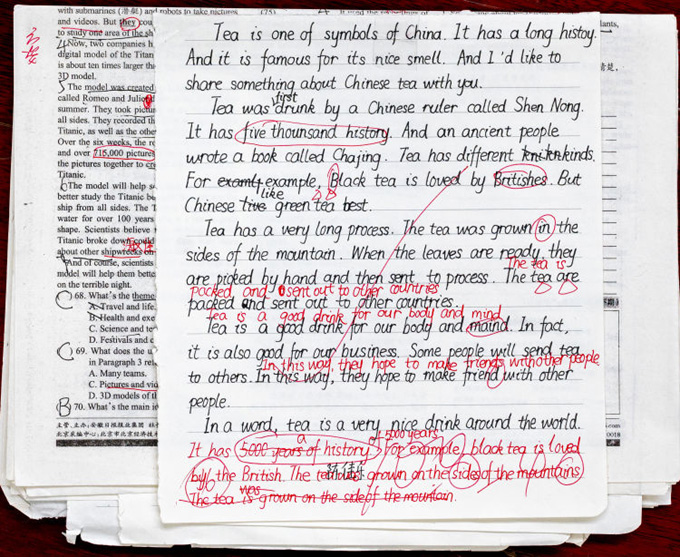 with submarines (潜艇) and robots to take pictures
and videos. But they cou
to study one area of the sh
Now, two companies h
digital model of the Titan
is about ten times larger tha
3D model.
The model was created
called Romeo and Julie
summer. They took pictur
all sides. They recorded th
Titanic, as well as the othe
Over the six weeks, the re
and over 715,000 pictures
the pictures together to cr
Titanic.
The model will help s
better study the Titanic be
ship from all sides. The T
water for over 100 years
shape. Scientists believe
Titanic broke down could
about other shipwrecks on
And of course, scientists
model will help them bette
on the terrible night.
68. What's the theme
A. Travel and life.
B. Health and exe
C. Science and te
D. Festivals and c
69. What does the u
in Paragraph 3 re
A. Many teams.
C. Pictures and vid
D. 3D models of th
70. What's the main i
Tea is one of symbols of China. It has a long histoy.
And it is famous for its nice smell. And I'd like to
share something about Chinese tea with you.
first
Tea was drunk by a Chinese ruler called Shen Nong.
It has five thounsand history. And an ancient people
wrote a book called Chajing. Tea has different kinds.
For example, Black tea is loved by Britishes. But
like
Chinese green tea best.
Tea has a very long process. The tea was grown in the
sides of the mountain. When the leaves are ready, they
are picked by hand and then sent to process. The tea are
The tea is
packed and sent out to other countries
packed and sent out to other countries.
Tea is a good drink for our body and mind
Tea is a good drink for our body and maind. In fact,
it is also good for our business. Some people will send tea
In this way, they hope to make friends with other people
to others. In this way, they hope to make friend with other
people.
In a word, tea is a very nice drink around the world.
of 5000 years
It has a 5000 years of history. For example, black tea is loved
by the British. The tea was grown on the sides of the mountains
The tea is grown on the side of the mountain.